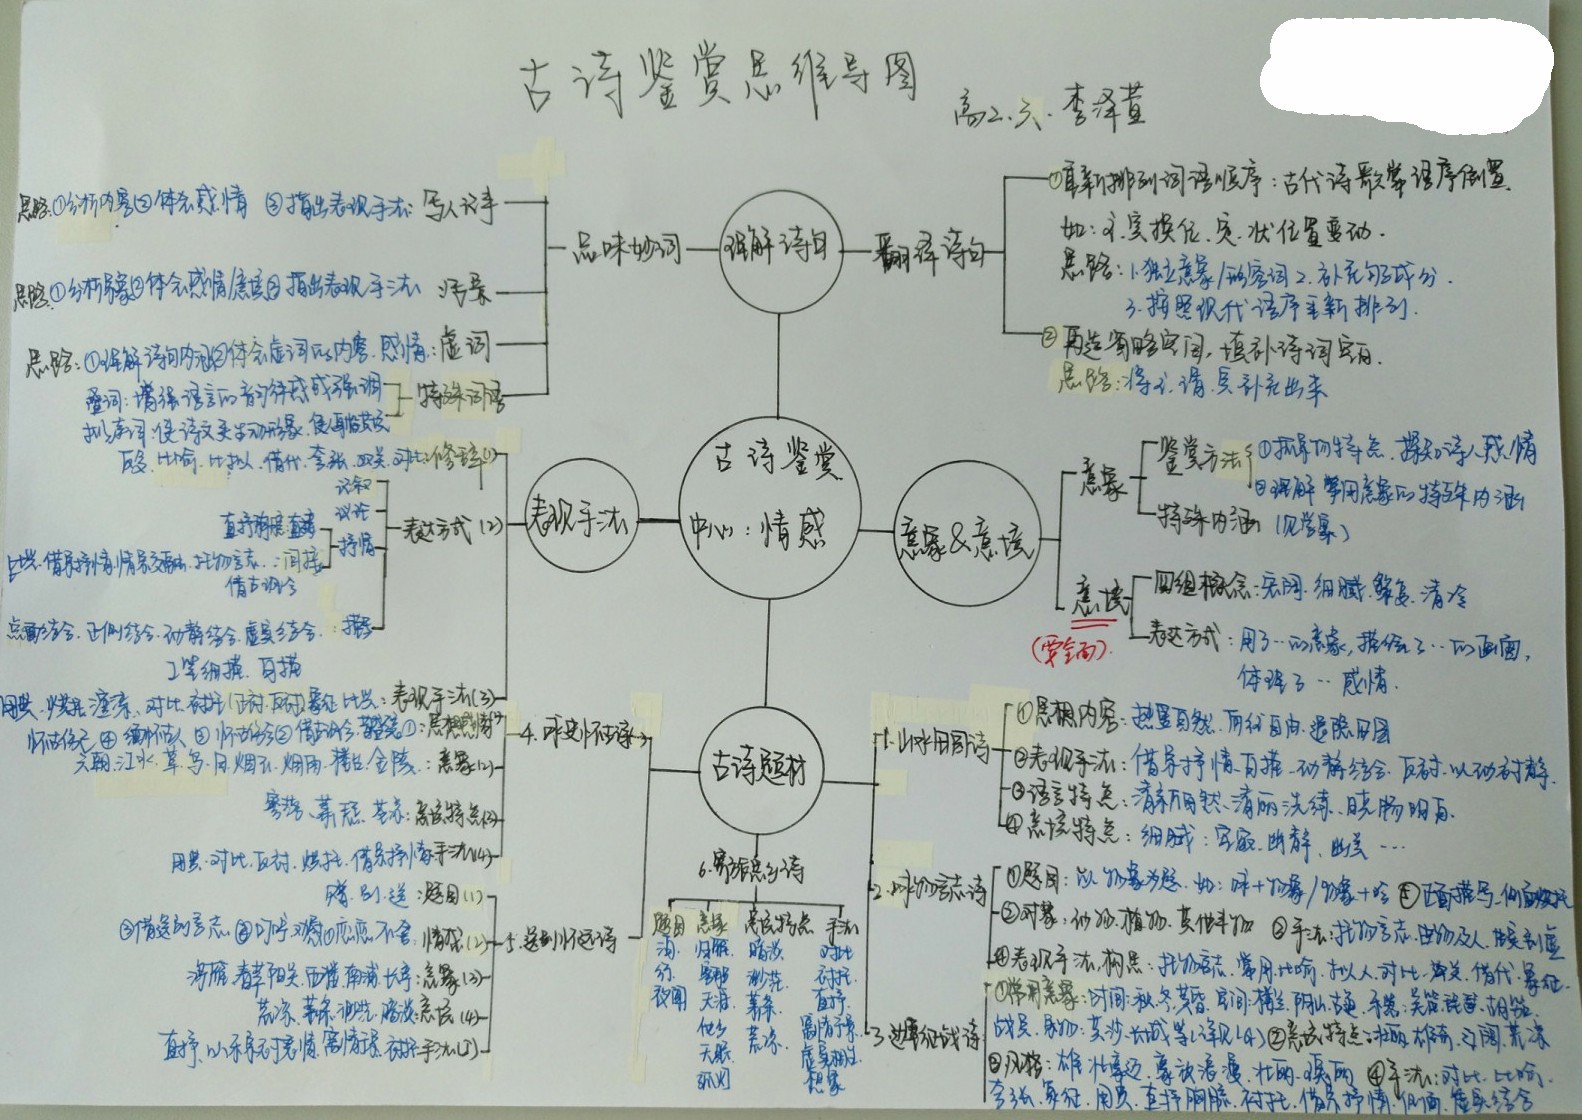 古诗鉴赏思维导图
高二.六. 李泽萱
古诗鉴赏
中心:情感
理解诗句
品味妙词
写人记事
思路:①分析内容②体会感情 ③指出表现手法:
写景
思路:①分析景象②体会感情/意境③指出表现手法
虚词
思路:①理解诗句内涵②体会虚词的内容.感情:
特殊词语
叠词:增强语言的音韵律感或强调
拟声词:使诗文更生动形象,使
翻译诗句
①重新排列词语顺序:古代诗歌常语序倒置.
如:主.宾换位.宾.状位置变动.
思路:1.独立意象/动宾词 2.补充句子成分.
3.按照现代语序重新排列.
②再造省略空间,填补诗词空白.
思路:将主.谓.宾补充出来
表现手法
修辞(1)
反复.比喻.比拟人.借代.夸张.双关.对比:
表达方式(2)
记叙
议论
抒情
直抒胸臆:直接
:间接
借景抒情.情景交融.托物言志.
借古讽今
描写
点面结合.正侧结合.动静结合.虚实结合.:
工笔细描.白描
表现手法(3)
用典.烘托.渲染.对比.衬托(正衬.反衬)象征.比兴:
意象&意境
意象
鉴赏方法
①抓景物特点,探知诗人感情
②理解常用意象的特殊内涵
特殊内涵(见学案)
意境
(要全面).
四组概念:宏阔.细腻.繁复.清冷
表达方式:用了…的意象,描绘了…的画面,
体现了…感情.
古诗题材
1.山水田园诗
①思想内容:热爱自然.向往自由.退隐田园
②表现手法:借景抒情.白描.动静结合.反衬.以动衬静.
③语言特点:清新自然、清丽洗练、晓畅明白.
④意境特点:细腻:宁寂.幽静、幽美…
2.咏物言志诗
①题目:以物象为题.如:咏+物象/物象+吟 ⑤正面描写.侧面烘托
②对象:动物.植物.其他事物 ③手法:托物言志.由物及人.
④表现手法.构思:托物言志.常用比喻.拟人.对比.双关.借代.象征.
3.边塞征战诗
①常用意象:时间:秋.冬.黄昏.空间:楼兰.阴山.
②意境特点:壮丽.雄奇.辽阔.荒凉
③风格:雄壮豪迈.豪放浪漫.壮丽.瑰丽 ④手法:对比.比喻.
夸张.象征.用典.直抒胸臆.衬托.借景抒情.侧面.虚实结合
4.咏史怀古诗
思想感情(1)
意象(2)
六朝.江水.草.鸟.月.烟云.烟雨.楼台.金陵.:
意境特点(3)
手法(4)
用典.对比.反衬.烘托.借景抒情
5.送别怀远诗
题目(1)
赠.别.送:
情感(2)
③借送别言志 ②叮咛.劝慰①恋恋不舍.
意象(3)
鸿雁.春草.阳关.西楼.南浦.长亭:
意境(4)
荒凉、萧条.迷茫.暗淡
手法(5)
直抒.
6.羁旅思乡诗
题目
夜闻
意象
归雁
客船
天涯
他乡
天际
孤灯
意境特点
暗淡
渺茫
萧条
荒凉
手法
对比
衬托
直抒
寓情于景
虚实相生
想象